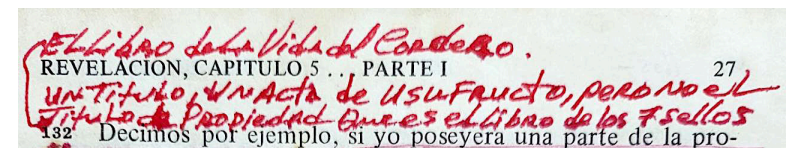 El Libro de la Vida del Cordero.
REVELACION, CAPITULO 5 . . . PARTE I 27
un Titulo, un Acta de USUFRUCTO, pero no el
Titulo de Propiedad que es el Libro de los 7 sellos
132 Decimos por ejemplo, si yo poseyera una parte de la pro-